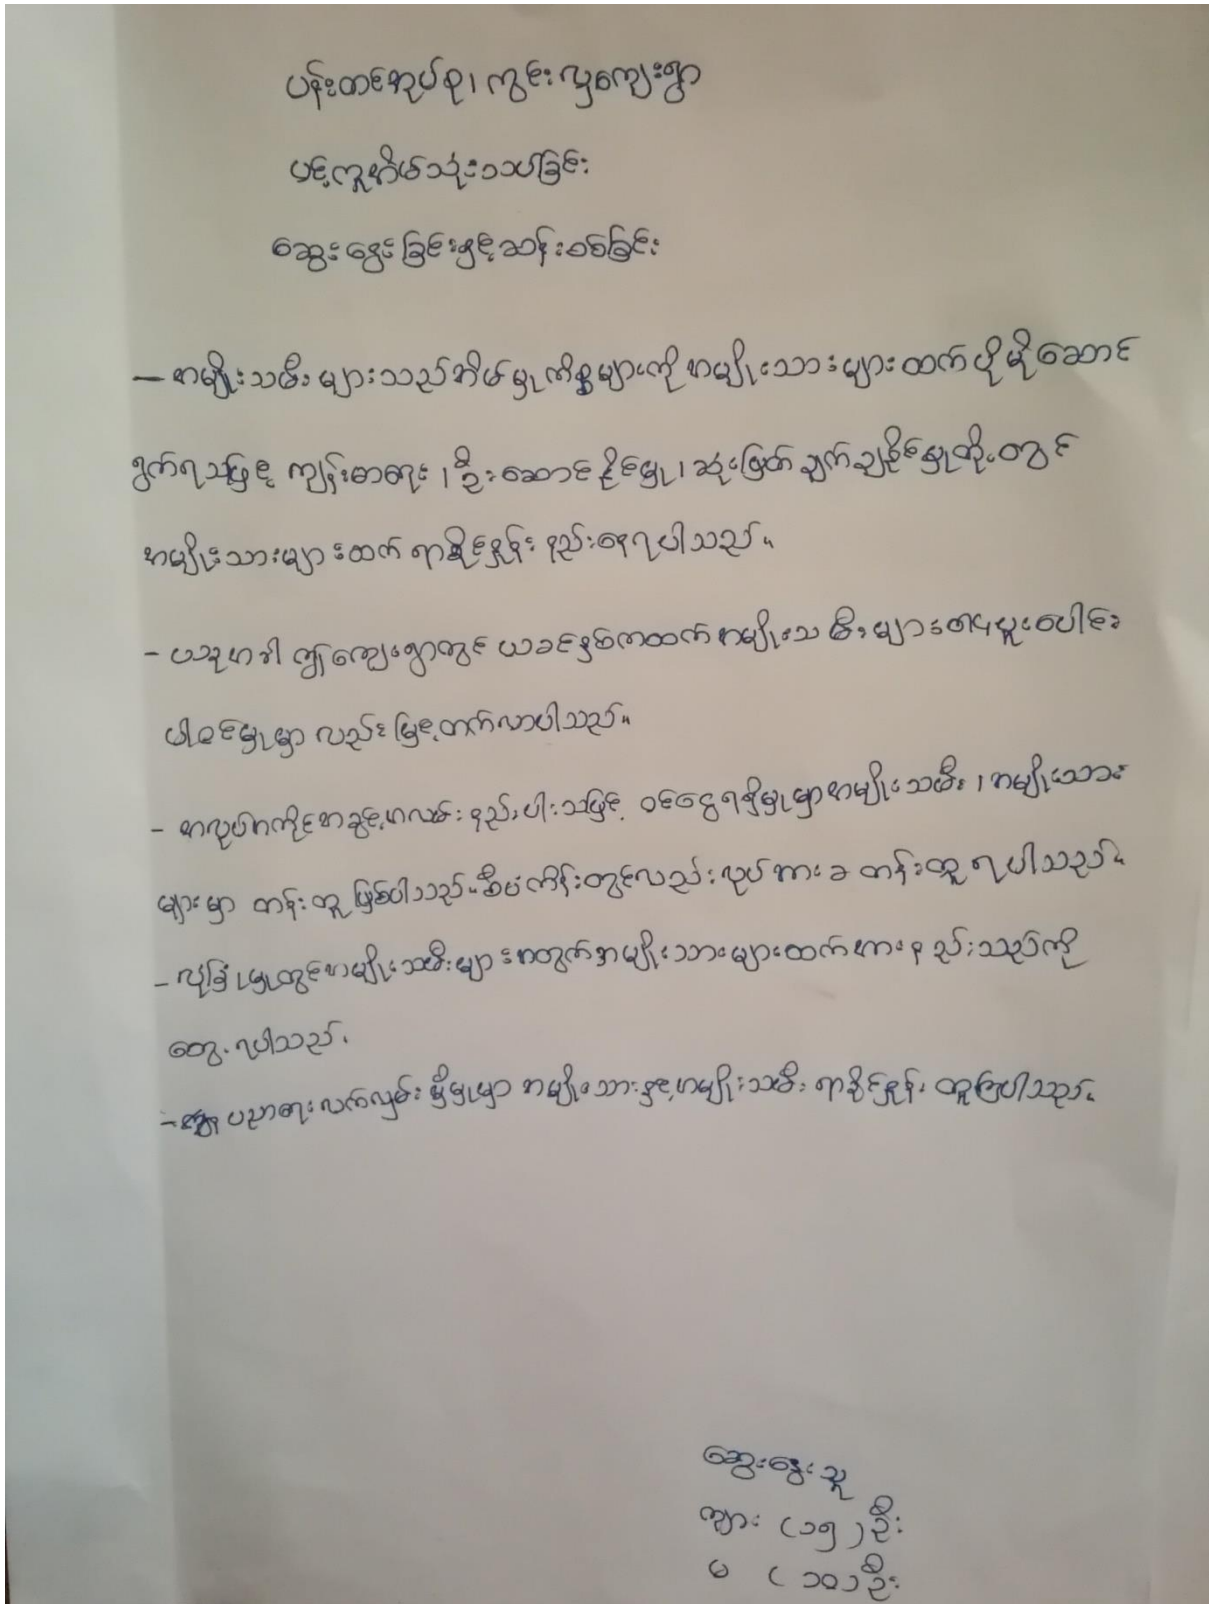 ပန်းတင်အုပ်စု၊ ကွင်းလှကျေးရွာ
ပင့်ကူအိမ်သုံးသပ်ခြင်း
ဆွေးနွေးခြင်းနှင့်ဆန်းစစ်ခြင်း
— အမျိုးသမီးများသည်အိမ်မှုကိစ္စများကိုအမျိုးသားများထက်ပိုမိုဆောင်
ရွက်ရသဖြင့် ကျန်းမာရေး၊ ဦးဆောင်နိုင်မှု၊ ဆုံးဖြတ်ချက်ချနိုင်မှုတို့တွင်
အမျိုးသားများထက် ရာခိုင်နှုန်း နည်းနေရပါသည်။
- ယခုအခါ ကျေးရွာတွင် ယခင်နှစ်ကထက်အမျိုးသမီးများပူးပေါင်း
ပါဝင်မှုမှာ လည်းမြင့်တက်လာပါသည်။
- အလုပ်အကိုင်အခွင့်အလမ်းနည်းပါးသဖြင့် ဝင်ငွေရရှိမှုမှာအမျိုးသမီး၊ အမျိုးသား
များမှာ တန်းတူဖြစ်ပါသည်။စီမံကိန်းတွင်လည်းလုပ်အားခတန်းတူရပါသည်။
- လုံခြုံမှုတွင်အမျိုးသမီးများအတွက်အမျိုးသားများထက်အားနည်းသည်ကို
တွေ့ရပါသည်။
- ပညာရေးလက်လှမ်းမှီမှုမှာ အမျိုးသားနှင့်အမျိုးသမီးရာခိုင်နှုန်း တူကြပါသည်။
ဆွေးနွေးသူ
ကျား (၁၅)ဦး
မ (၁၀)ဦး